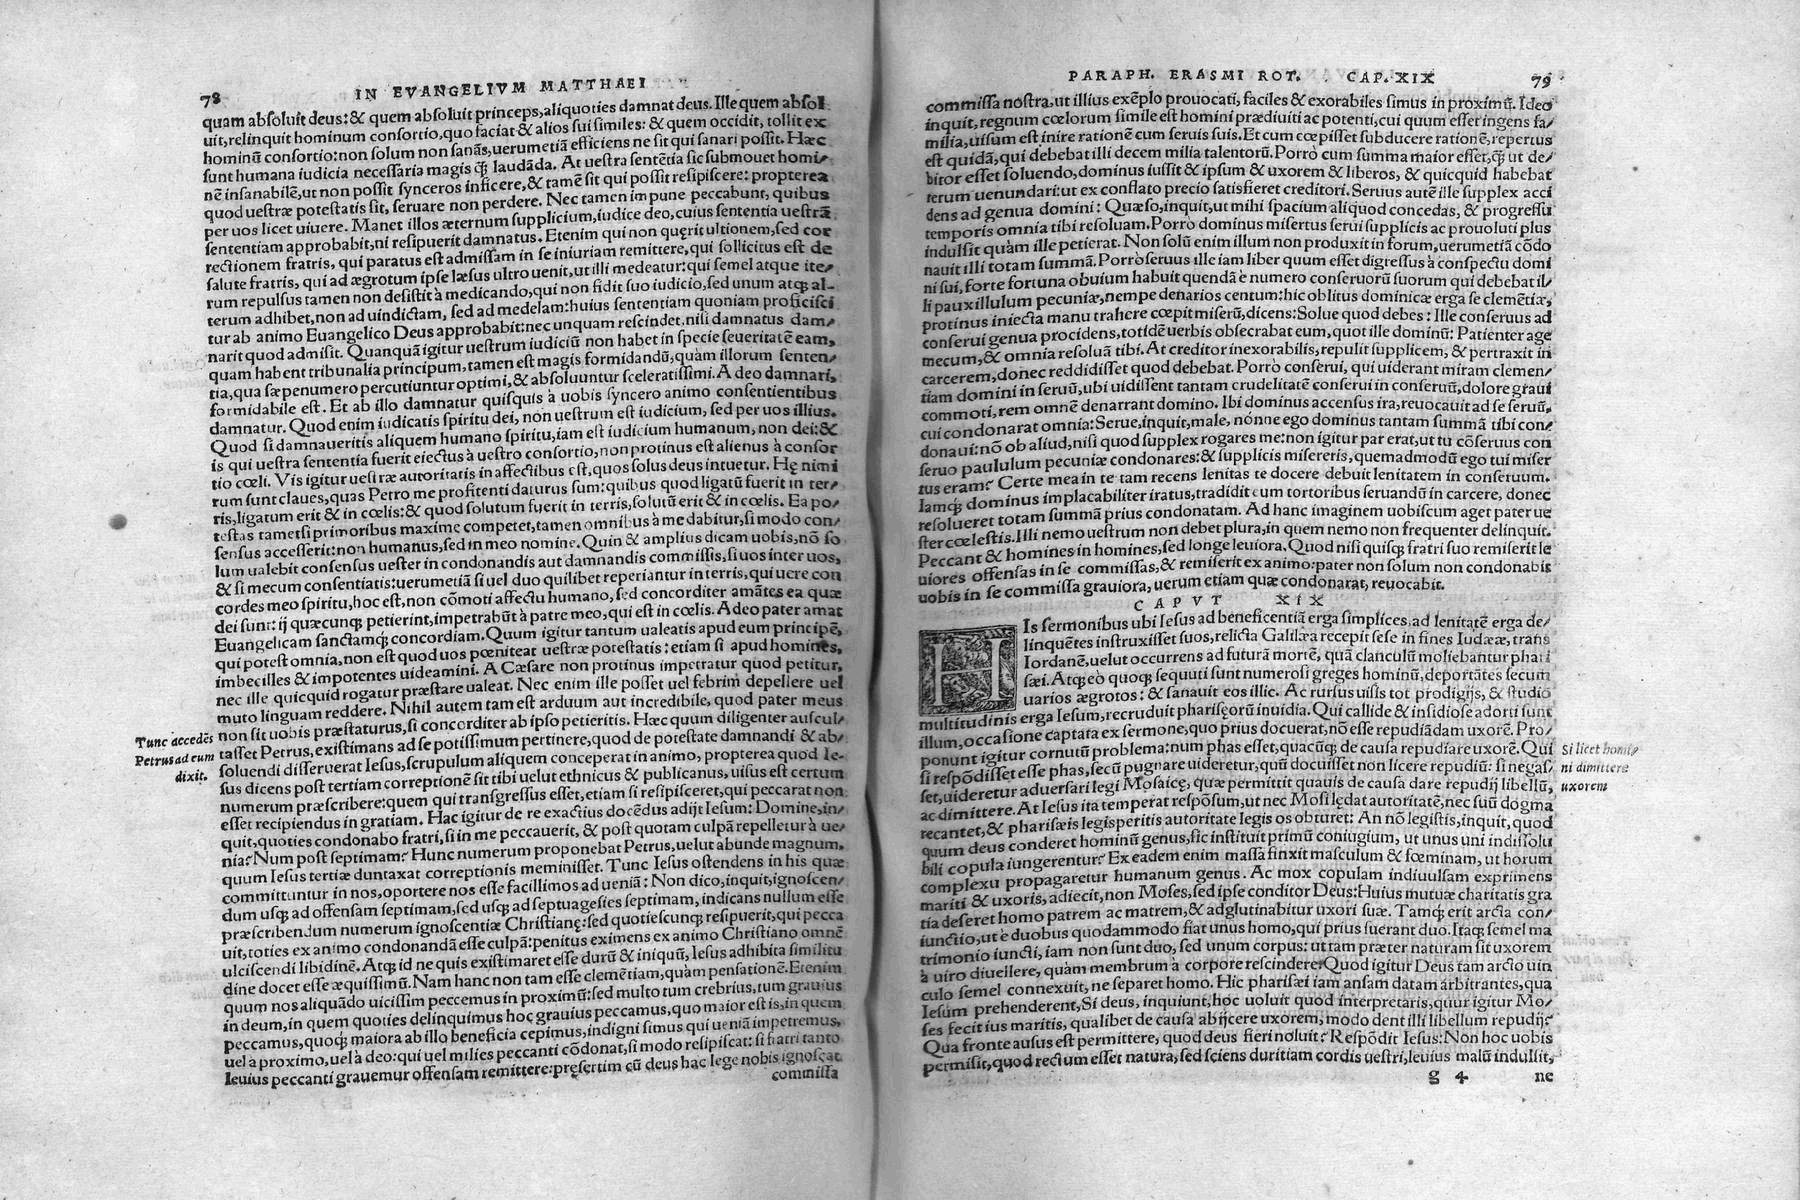 78 IN EVANGELIVM MATTHAEI
quam absoluit deus: & quem absoluit princeps, aliquoties damnat deus. Ille quem absol
uit, relinquit hominum consortio, quo faciat & alios sui similes: & quem occidit, tollit ex
hominũ consortio: non solum non sanãs, uerumetiã efficiens ne sit qui sanari possit. Hæc
sunt humana iudicia necessaria magis q̃ laudãda. At uestra sentẽtia sic submouet homi/
nẽ insanabilẽ, ut non possit synceros inficere, & tamẽ sit qui possit resipiscere: propterea
quod uestræ potestatis sit, seruare non perdere. Nec tamen impune peccabunt, quibus
per uos licet uiuere. Manet illos æternum supplicium, iudice deo, cuius sententia uestrã
sententiam approbabit, ni resipuerit damnatus. Etenim qui non quęrit ultionem, sed cor
rectionem fratris, qui paratus est admissam in se iniuriam remittere, qui sollicitus est de
salute fratris, qui ad ægrotum ipse læsus ultro uenit, ut illi medeatur: qui semel atque ite/
rum repulsus tamen non desistit à medicando, qui non fidit suo iudicio, sed unum atq; al/
terum adhibet, non ad uindictam, sed ad medelam: huius sententiam quoniam proficisci
tur ab animo Euangelico Deus approbabit: nec unquam rescindet, nisi damnatus dam/
narit quod admisit. Quanquã igitur uestrum iudiciũ non habet in specie seueritatẽ eam,
quam habent tribunalia principum, tamen est magis formidandũ, quàm illorum senten/
tia, qua sæpenumero percutiuntur optimi, & absoluuntur sceleratissimi. A deo damnari,
formidabile est. Et ab illo damnatur quisquis à uobis syncero animo consentientibus
damnatur. Quod enim iudicatis spiritu dei, non uestrum est iudicium, sed per uos illius.
Quod si damnaueritis aliquem humano spiritu, iam est iudicium humanum, non dei: &
is qui uestra sententia fuerit eiectus à uestro consortio, non protinus est alienus à consor
tio cœli. Vis igitur uestræ autoritatis in affectibus est, quos solus deus intuetur. Hę nimi
rum sunt claues, quas Petro me profitenti daturus sum: quibus quod ligatũ fuerit in ter/
ris, ligatum erit & in cœlis: & quod solutum fuerit in terris, solutũ erit & in cœlis. Ea po/
testas tametsi primoribus maxime competet, tamen omnibus à me dabitur, si modo con/
sensus accesserit: non humanus, sed in meo nomine. Quin & amplius dicam uobis, nõ so
lum ualebit consensus uester in condonandis aut damnandis commissis, si uos inter uos,
& si mecum consentiatis: uerumetiã si uel duo quilibet reperiantur in terris, qui uere con
cordes meo spiritu, hoc est, non cõmoti affectu humano, sed concorditer amãtes ea quæ
dei sunt: ij quæcunq; petierint, impetrabũt à patre meo, qui est in cœlis. Adeo pater amat
Euangelicam sanctamq; concordiam. Quum igitur tantum ualeatis apud eum principẽ,
qui potest omnia, non est quod uos pœniteat uestræ potestatis: etiam si apud homines,
imbecilles & impotentes uideamini. A Cæsare non protinus impetratur quod petitur,
nec ille quicquid rogatur præstare ualeat. Nec enim ille posset uel febrim depellere uel
muto linguam reddere. Nihil autem tam est arduum aut incredibile, quod pater meus
non sit uobis præstaturus, si concorditer ab ipso petieritis. Hæc quum diligenter auscul/
Tunc accedẽs
Petrus ad eum
dixit.
tasset Petrus, existimans ad se potissimum pertinere, quod de potestate damnandi & ab/
soluendi disseruerat Iesus, scrupulum aliquem conceperat in animo, propterea quod Ie-
sus dicens post tertiam correptionẽ sit tibi uelut ethnicus & publicanus, uisus est certum
numerum præscribere: quem qui transgressus esset, etiam si resipisceret, qui peccarat non
esset recipiendus in gratiam. Hac igitur de re exactius docẽdus adijt Iesum: Domine, in/
quit, quoties condonabo fratri, si in me peccauerit, & post quotam culpã repelletur à ue/
nia? Num post septimam? Hunc numerum proponebat Petrus, uelut abunde magnum,
quum Iesus tertiæ duntaxat correptionis meminisset. Tunc Iesus ostendens in his quæ
committuntur in nos, oportere nos esse facillimos ad ueniã: Non dico, inquit, ignoscen/
dum usq; ad offensam septimam, sed usq; ad septuagesies septimam, indicans nullum esse
præscribendum numerum ignoscentiæ Christianę: sed quotiescunq; resipuerit, qui pecca
uit, toties ex animo condonandã esse culpã: penitus eximens ex animo Christiano omnẽ
ulciscendi libidinẽ. Atq; id ne quis existimaret esse durũ & iniquũ, Iesus adhibita similitu
dine docet esse æquissimũ. Nam hanc non tam esse clemẽtiam, quàm pensationẽ. Etenim
quum nos aliquãdo uicissim peccemus in proximũ: sed multo tum crebrius, tum grauius
in deum, in quem quoties delinquimus hoc grauius peccamus, quo maior est is, in quem
peccamus, quoq; maiora ab illo beneficia cepimus, indigni simus qui ueniã impetremus,
uel à proximo, uel à deo: qui uel milies peccanti cõdonat, si modo resipiscat: si fratri tanto
leuius peccanti grauemur offensam remittere: pręsertim cũ deus hac lege nobis ignoscat
commissa
PARAPH. ERASMI ROT. CAP. XIX 79
commissa nostra, ut illius exẽplo prouocati, faciles & exorabiles simus in proximũ. Ideo
inquit, regnum cœlorum simile est homini prædiuiti ac potenti, cui quum esset ingens fa/
milia, uisum est inire rationẽ cum seruis suis. Et cum cœpisset subducere rationẽ, repertus
est quidã, qui debebat illi decem milia talentorũ. Porrò cum summa maior esset, q̃ ut de/
bitor esset soluendo, dominus iussit & ipsum & uxorem & liberos, & quicquid habebat
terum uenundari: ut ex conflato precio satisfieret creditori. Seruus autẽ ille supplex acci
dens ad genua domini: Quæso, inquit, ut mihi spacium aliquod concedas, & progressu
temporis omnia tibi resoluam. Porrò dominus misertus serui supplicis ac prouoluti plus
indulsit quàm ille petierat. Non solũ enim illum non produxit in forum, uerumetiã cõdo
nauit illi totam summã. Porrò seruus ille iam liber quum esset digressus à conspectu domi
ni sui, forte fortuna obuium habuit quendã è numero conseruorũ suorum qui debebat il/
li pauxillulum pecuniæ, nempe denarios centum: hic oblitus dominicæ erga se clemẽtiæ,
protinus iniecta manu trahere cœpit miserũ, dicens: Solue quod debes: Ille conseruus ad
conserui genua procidens, totidẽ uerbis obsecrabat eum, quot ille dominũ: Patienter age
mecum, & omnia resoluã tibi. At creditor inexorabilis, repulit supplicem, & pertraxit in
carcerem, donec reddidisset quod debebat. Porrò conserui, qui uiderant miram clemen/
tiam domini in seruũ, ubi uidissent tantam crudelitatẽ conserui in conseruũ, dolore graui
commoti, rem omnẽ denarrant domino. Ibi dominus accensus ira, reuocauit ad se seruũ,
cui condonarat omnia: Serue, inquit, male, nónne ego dominus tantam summã tibi con/
donaui: nõ ob aliud, nisi quod supplex rogares me: non igitur par erat, ut tu cõseruus con
seruo paululum pecuniæ condonares: & supplicis misereris, quemadmodũ ego tui miser
tus eram? Certe mea in te tam recens lenitas te docere debuit lenitatem in conseruum.
Iamq; dominus implacabiliter iratus, tradidit eum tortoribus seruandũ in carcere, donec
resolueret totam summã prius condonatam. Ad hanc imaginem uobiscum aget pater ue
ster cœlestis. Illi nemo uestrum non debet plura, in quem nemo non frequenter delinquit.
Peccant & homines in homines, sed longe leuiora. Quod nisi quisq; fratri suo remiserit le
uiores offensas in se commissas, & remiserit ex animo: pater non solum non condonabit
uobis in se commissa grauiora, uerum etiam quæ condonarat, reuocabit.
CAPVT XIX
HIs sermonibus ubi Iesus ad beneficentiã erga simplices, ad lenitatẽ erga de/
linquẽtes instruxisset suos, relicta Galilæa recepit sese in fines Iudææ, trans
Iordanẽ, uelut occurrens ad futurã mortẽ, quã clanculũ moliebantur phari
sæi. Atq; eò quoq; sequuti sunt numerosi greges hominũ, deportãtes secum
uarios ægrotos: & sanauit eos illic. Ac rursus uisis tot prodigijs, & studio
multitudinis erga Iesum, recruduit pharisęorũ inuidia. Qui callide & insidiose adorti sunt
illum, occasione captata ex sermone, quo prius docuerat, nõ esse repudiãdam uxorẽ. Pro/
ponunt igitur cornutũ problema: num phas esset, quacũq; de causa repudiare uxorẽ. Qui
Si licet homi/
ni dimittere
uxorem
si respõdisset esse phas, secũ pugnare uideretur, qũũ docuisset non licere repudiũ: si negas/
set, uideretur aduersari legi Mosaicę, quæ permittit quauis de causa dare repudij libellũ,
ac dimittere. At Iesus ita temperat respõsum, ut nec Mosi lędat autoritatẽ, nec suũ dogma
recantet, & pharisæis legisperitis autoritate legis os obturet: An nõ legistis, inquit, quod
quum deus conderet hominũ genus, sic instituit primũ coniugium, ut unus uni indissolu
bili copula iungerentur? Ex eadem enim massa finxit masculum & fœminam, ut horum
complexu propagaretur humanum genus. Ac mox copulam indiuulsam exprimens
mariti & uxoris, adiecit, non Moses, sed ipse conditor Deus: Huius mutuæ charitatis gra
tia deseret homo patrem ac matrem, & adglutinabitur uxori suæ. Tamq; erit arcta con/
iunctio, ut è duobus quodammodo fiat unus homo, qui prius fuerant duo. Itaq; semel ma
trimonio iuncti, iam non sunt duo, sed unum corpus: ut tam præter naturam sit uxorem
à uiro diuellere, quàm membrum à corpore rescindere. Quod igitur Deus tam arcto uin
culo semel connexuit, ne separet homo. Hic pharisæi iam ansam datam arbitrantes, qua
Iesum prehenderent, Si deus, inquiunt, hoc uoluit quod interpretaris, quur igitur Mo/
ses fecit ius maritis, qualibet de causa abijcere uxorem, modo dent illi libellum repudij?
Qua fronte ausus est permittere, quod deus fieri noluit? Respõdit Iesus: Non hoc uobis
permisit, quod rectum esset natura, sed sciens duritiam cordis uestri, leuius malũ indulsit,
g 4 ne